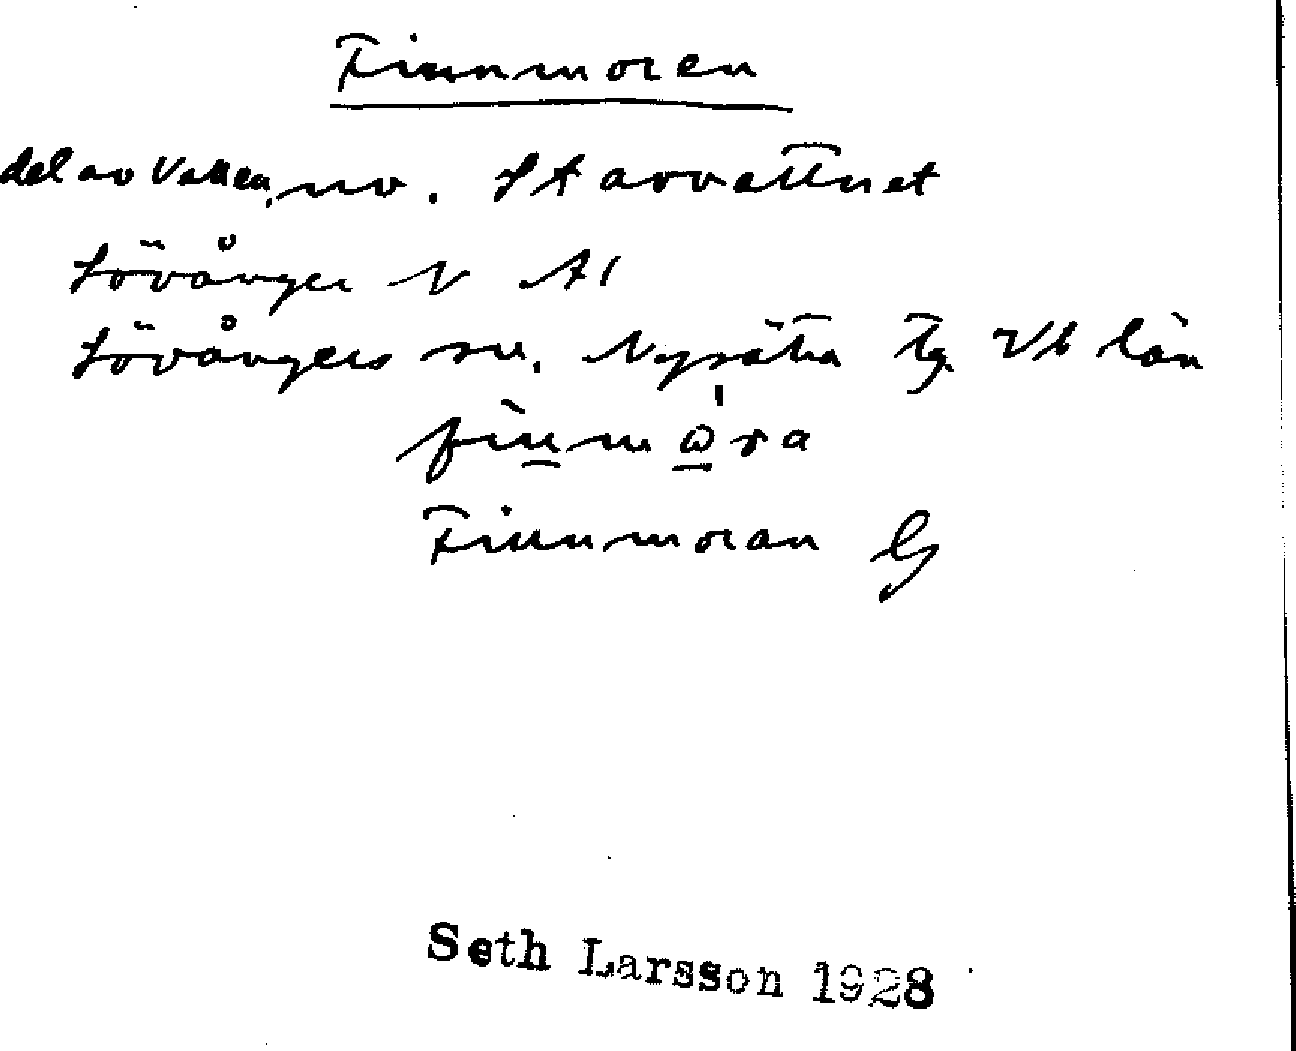 Finnmoren
del av Vallen, nv. Starvattnet
Lövånger N A1
Lövångers sn. Nysätra Tg. Vb län
Finnmoran
Seth Larsson 1928